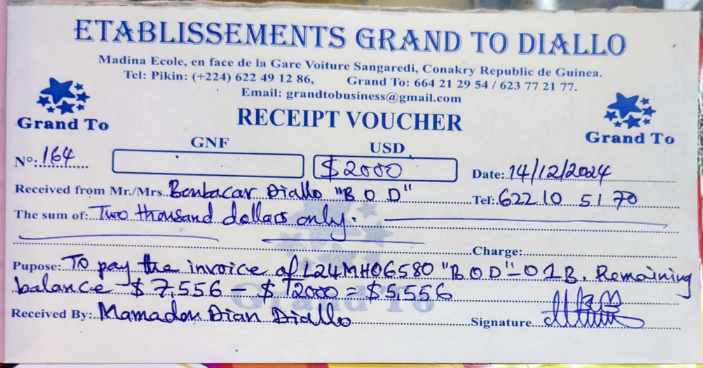 ETABLISSEMENTS GRAND TO DIALLO
Madina Ecole, en face de la Gare Voiture Sangaredi, Conakry Republic de Guinea.
Tel: Pikin: (+224) 622 49 12 86, Grand To: 664 21 29 54 / 623 77 21 77.
Email: grandtobusiness@gmail.com
Grand To RECEIPT VOUCHER Grand To
GNF USD
Nº: 164 $2000 Date: 14/12/2024
Received from Mr./Mrs. Boubacar Diallo "B O D" Tel: 622 10 51 70
The sum of: Two thousand dollars only.
Charge:
Pupose: To pay the invoice of L24MH06580 "B O D" - 01B. Remaining
balance $7,556 - $2000 = $5,556
Grand To
Received By: Mamadou Dian Diallo Signature